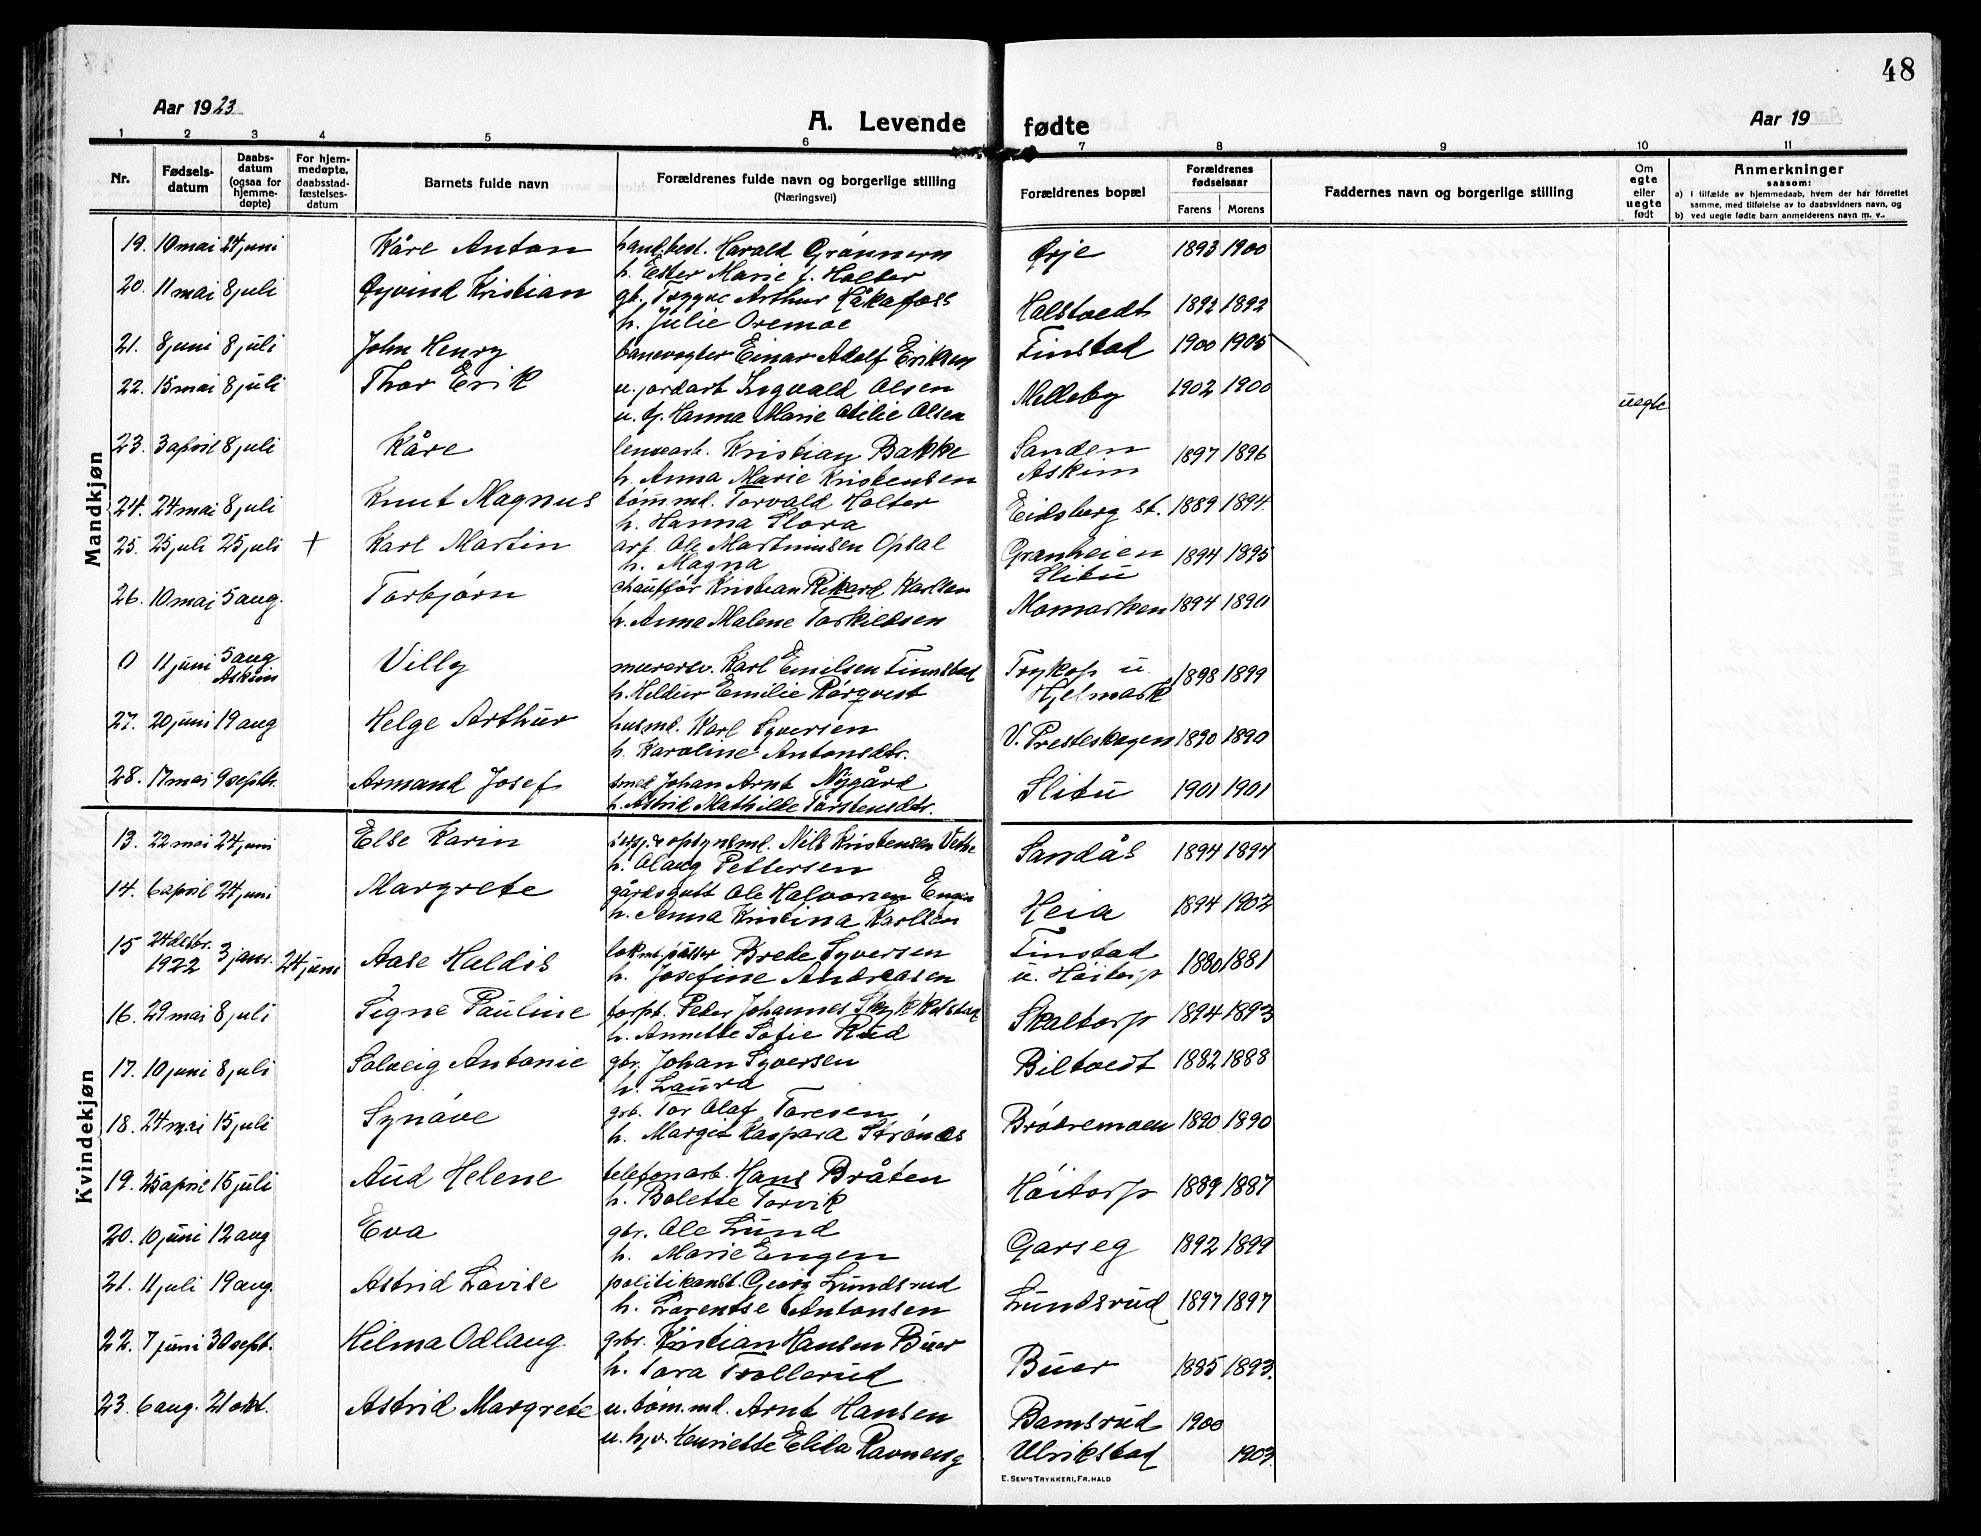 48
Aar 1923
A. Levende
fødte
Aar 19
1 2 3 4 5 6 7 8 9 10 11
Nr.
Fødsels-
datum
Daabs-
datum
(ogsaa for
hjemme-
døpte)
For hjem-
medøpte,
daabsstad-
fæstelses-
datum
Barnets fulde navn
Forældrenes fulde navn og borgerlige stilling
(Næringsvei)
Forældrenes bopæl
Forældrenes
fødselsaar
Farens Morens
Faddernes navn og borgerlige stilling
Om
egte
eller
uegte
født
Anmerkninger
saasom:
a) i tilfælde av hjemmedaab, hvem der har forrettet
samme, med tilføielse av to daabsvidners navn, og
b) ved uegte fødte barn anmelderens navn m. v..
Mandkjøn
19. 10 mai 24 juni Kåre Anton handbest. Harald Grønnern Ørje 1893 1900
h. Ester Marie f. Holter
20. 11 mai 8 juli Øyvind Kristian gb. Trygve Arthur Håkafoss Halstvedt 1892 1892
h. Julie Oremoe
21. 8 juni 8 juli John Henry banevogter Einar Adolf Eriksen Finstad 1900 1905
22. 15 mai 8 juli Thor Erik u. jordarb Ingvald Olsen Melleby 1902 1900 uegte
u. tj. Hanna Marie Otilie Olsen
23. 3 april 8 juli Kåre Kristian Bakke Sanden 1897 1896
h. Anna Marie Kristensen Askim
24. 24 mai 8 juli Knut Magnus tømmd. Torvald Holter Eidsberg st. 1889 1894.
h. Hanna Slora
25. 25 juli 25 juli + Karl Martin arb. Ole Martiniusen Opsal Granheien 1894 1895
h. Magna Slitu
26. 10 mai 5 aug. Torbjørn chauffør Kristian Rikard Karlsen Momarken 1894 1890
h. Anna Malene Torkildsen
0 11 juni 5 aug Villy murersv. Karl Emilsen Finnstad Trykop u. 1898 1899
Askim h. Hildur Emilie Rörqvist Hjelmark
27. 20 juni 19 aug Helge Arthur husmd. Karl Syversen V. Presteskogen 1890 1890
h. Karoline Antonsdtr.
28. 17 mai 9 septbr. Armand Josef smed Johan Arnt Nygård Slitu 1901 1901
h. Astrid Mathilde Torstensdtr.
Kvindekjøn
13. 22 mai 24 juni Else Karin opsynsmd. Nils Kristensen Vethe Sandås 1894 1894
h. Olaug Pettersen
14. 6 april 24 juni Margrete gårdsgutt Ole Halvorsen Engen Heia 1894 1902
h. Anna Kristina Karlsen
15 24 desbr. 1922 3 janr. 24 juni Aase Haldis lokmt.pusser Brede Syversen Finstad 1880 1881
h. Josefine Andreasen u. Höitorp
16. 29 mai 8 juli Signe Pauline torpt. Peder Johannes Skykkelstad Skaltorp 1894 1893
h. Annette Sofie Rud
17. 10 juni 8 juli Solveig Antonie gbr. Johan Syversen Biltvedt 1882 1888
h. Laura
18. 24 mai 15 juli Synöve gsb. Tor Olaf Toresen Brödremoen 1890 1890
h. Margit Kaspara Strönes
19. 25 april 15 juli Aud Helene telefonarb. Hans Bråten Höitorp 1889 1887
h. Bolette Torvik
20. 10 juni 12 aug Eva gbr. Ole Lund Garseg 1892 1899
h. Marie Engen
21. 11 juli 19 aug. Astrid Lovise politikonst. Georg Lundsrud Lundsrud 1897 1897
h. Larentse Antonsen
22. 7 juni 30 sept. Hilma Odlaug gsbr. Kristian Hansen Buer Buer 1885 1893.
h. Tora Trollerud
23. 6 aug. 21 okt. Astrid Margrete u. tømmd. Arnt Hansen Bamsrud 1900
u. hjv. Henriette Elida Ravneng Ulrikstad 1903.
E. SEM'S TRYKKERI, FR.HALD